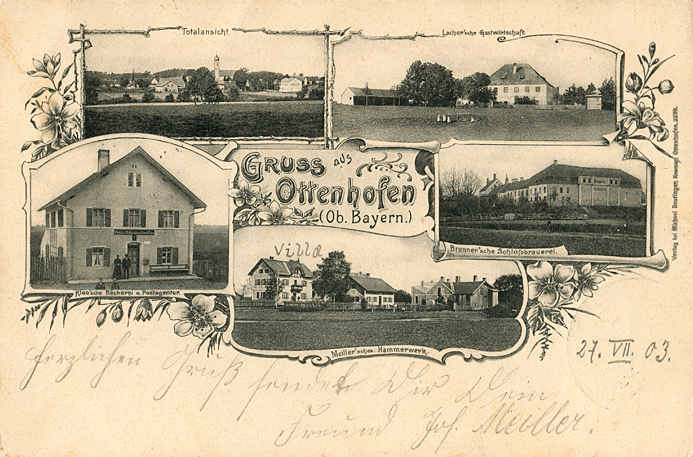 Totalansicht.
Lacher'sche Gastwirtschaft
Gruss aus
Ottenhofen
(Ob. Bayern.)
Kloo'sche Bäckerei u. Postagentur.
Brenner'sche Schlossbrauerei.
Villa
Meiller'sches Hammerwerk.
Verlag bei Michael Deutinger, Kramer, Ottenhofen.
27. VII. 03.
Herzlichen Gruß sendet Dir Dein
Freund Jos. Meiller.